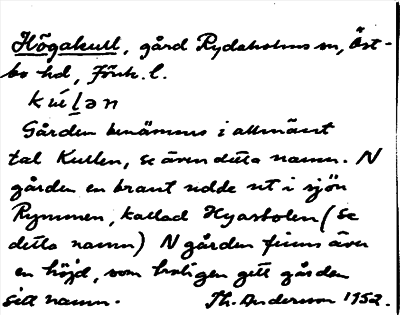 Högakull, gård Rydaholms sn, Öst-
bo hd, Jönk. l.
kúḷən
Gården benämnes i allmänt
tal Kullen, se även detta namn. N
gården en brant udde ut i sjön
Rymmen, kallad Hyarbolen (se
detta namn) N gården finns även
en höjd, som troligen gett gården
sitt namn. Th. Andersson 1952.